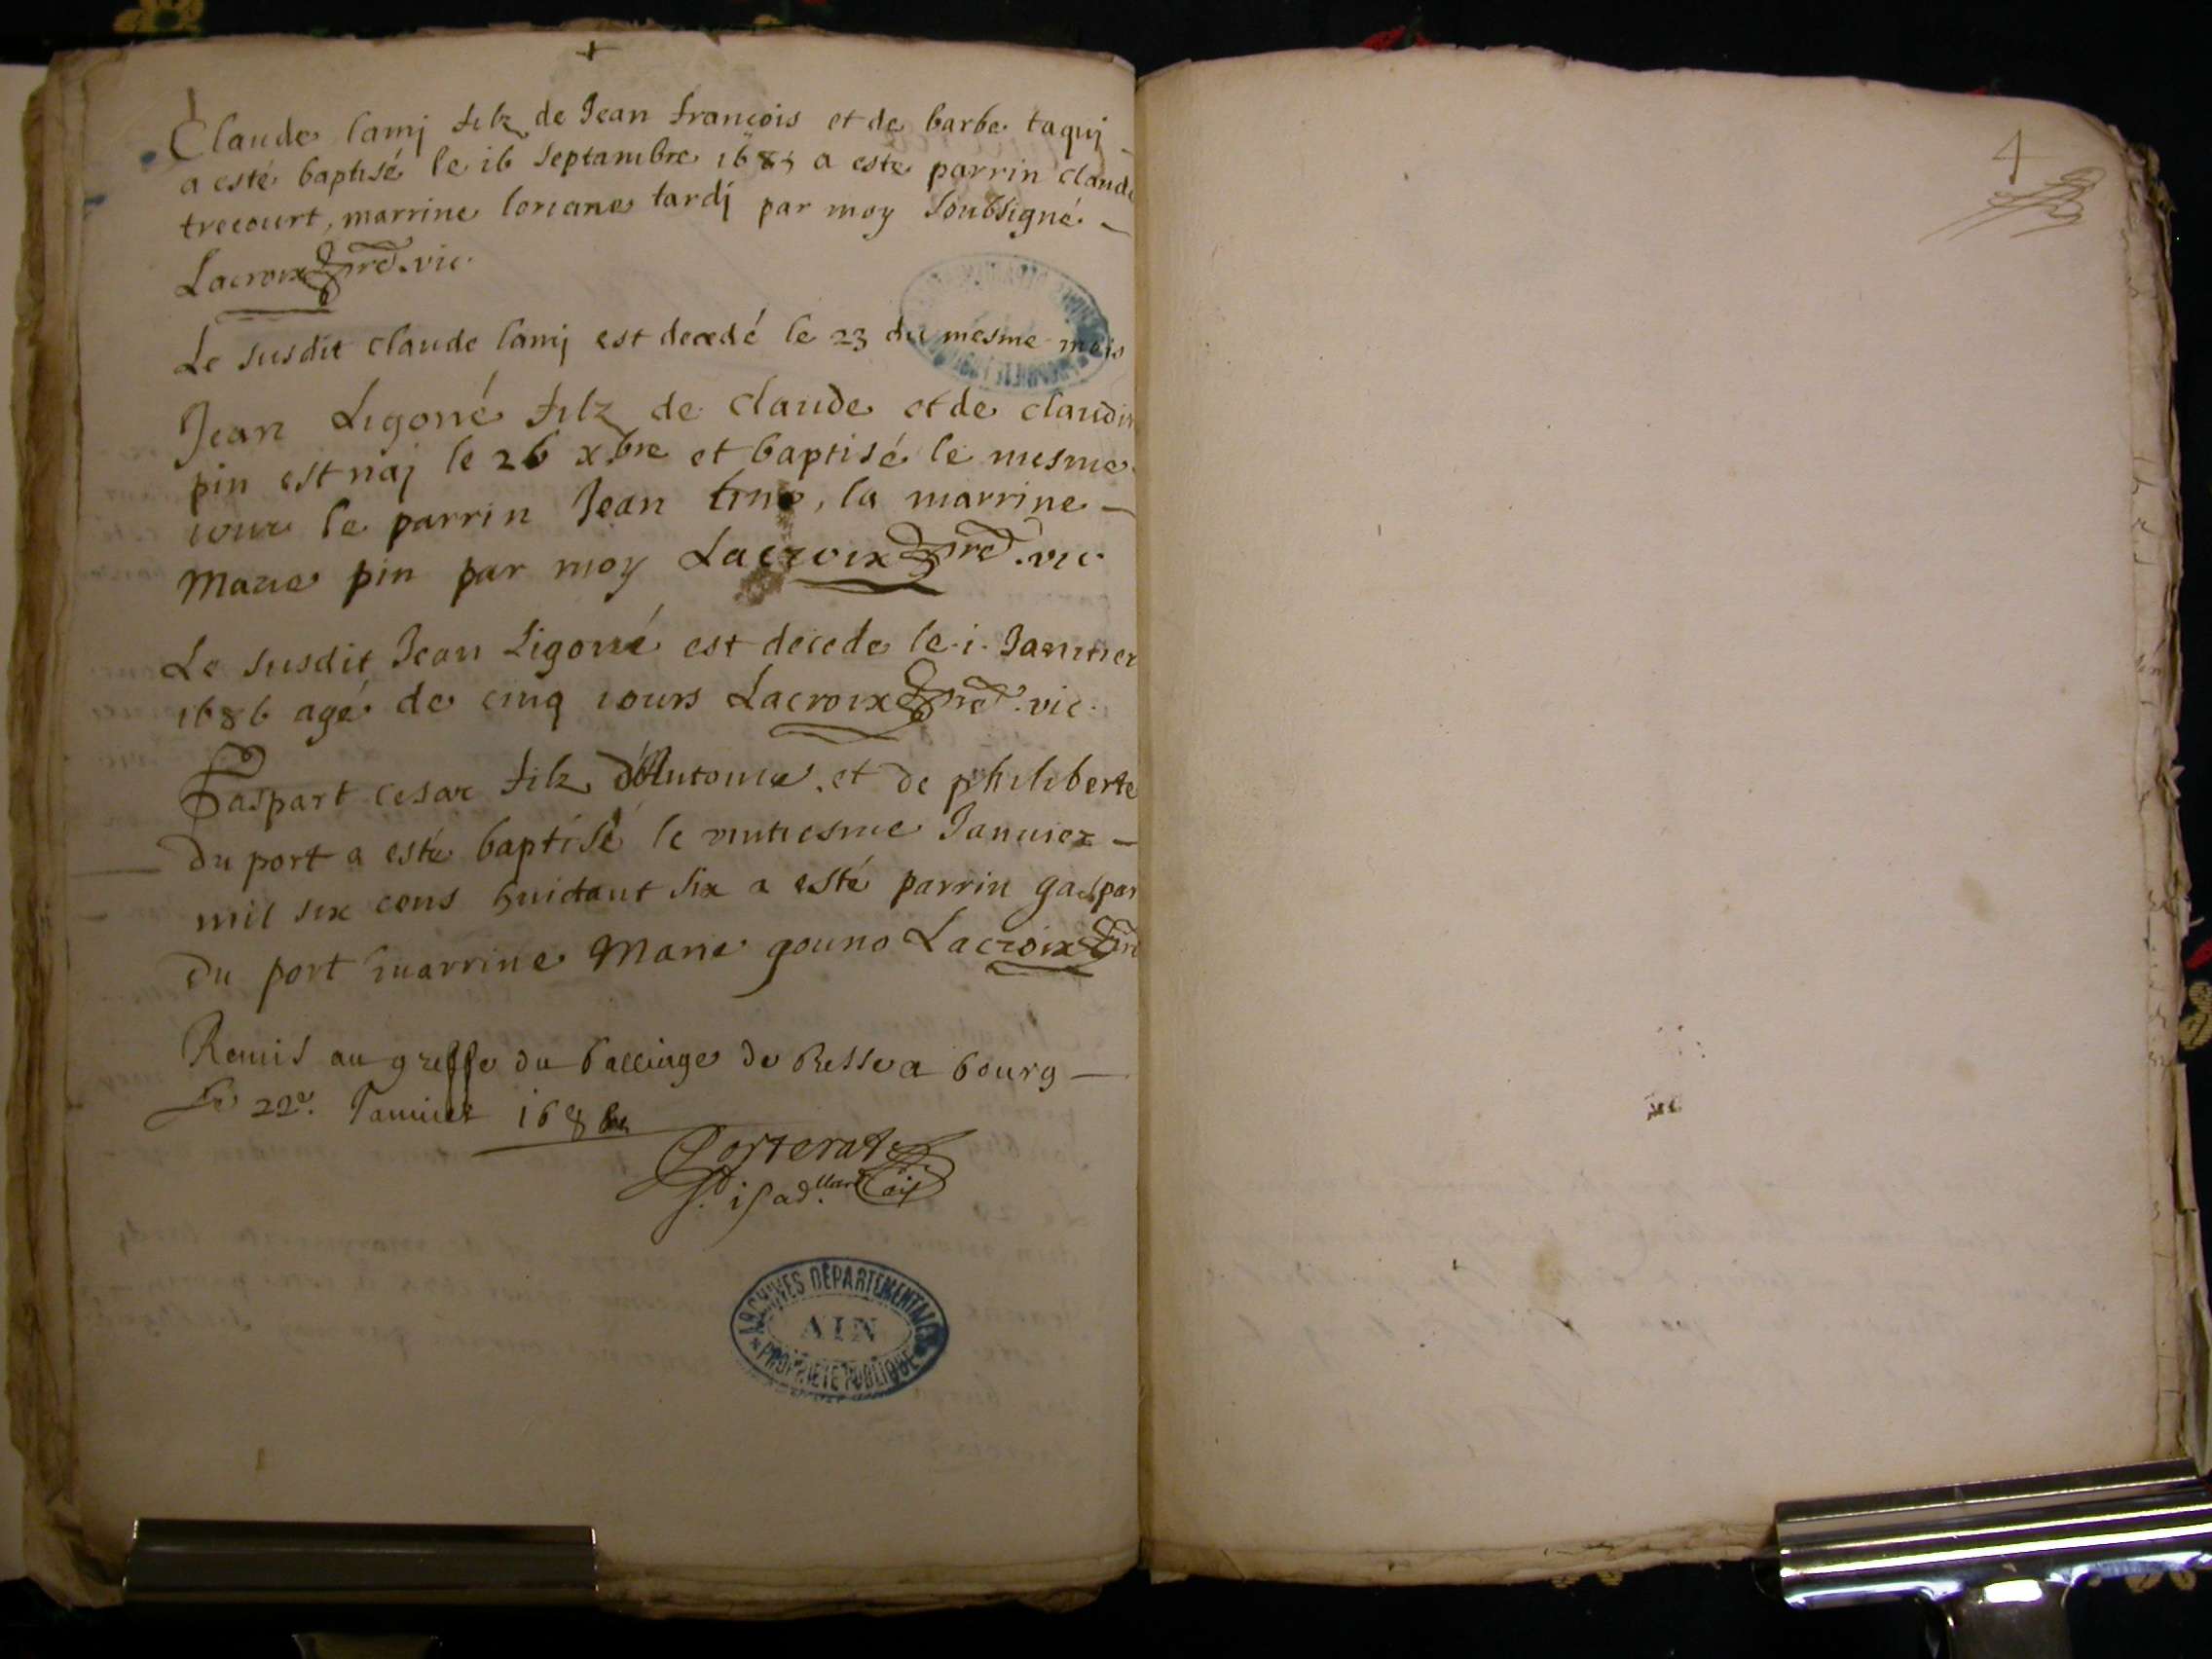 Claude lamj filz de Jean françois et de barbe taquj
a esté baptisé le 16 Septambre 1685 a este parrin claude
trecourt, marrine tardj par moy Soubsigné
Lacroix pre. vic.
Le susdit claude lamj est decedé le 23 du mesme mois
Jean Ligoné filz de claude et de claudin
pin est naj le 26 xbre et baptisé le mesme
iour le parrin Jean la marrine
Marie pin par moy Lacroix pre. vic.
Le susdit Jean Ligoné est decede le .i. Januier
1686 agé de cinq iours Lacroix pre. vic.
Gaspart cesar filz d'Antoine et de philiberte
du port a esté baptisé le vintiesme Januier
mil six cens huictant six a esté parrin gaspar
du port marrine Marie gouno Lacroix pre
Remis au greffe du balliage de Bresse a bourg
le 22e. Januier 1686
ARCHIVES DÉPARTEMENTALES
AIN
PROPRIÉTÉ PUBLIQUE
4